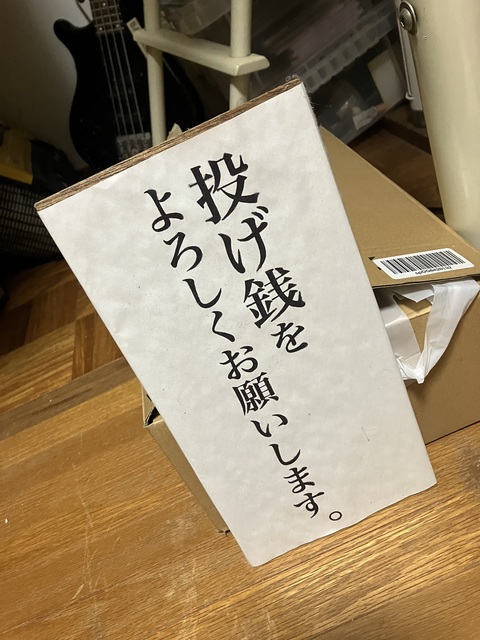 投げ銭を
よろしくお願いします。